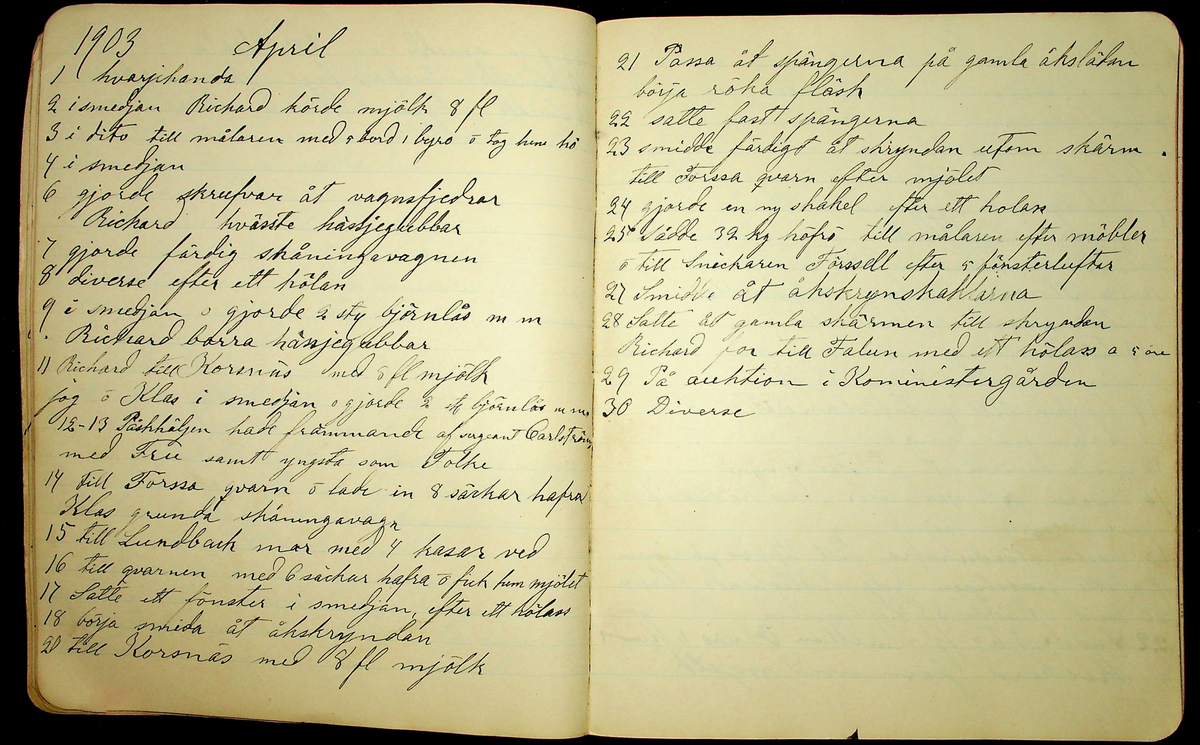 1903 April
1 hvarjehanda
2 i smedjan Richard körde mjölk 8 fl
3 i dito till målaren med 5 bord 1 byrå o tog hem hö
4 i smedjan
6 gjorde skrufvar åt vagnsfjedrar
Richard hvässte hässjegubbar
7 gjorde färdig skåningavagnen
8 diverse efter ett hölan
9 i smedjan o gjorde 2 sty björnlås m m
Richard borra hässjegubbar
11 Richard till Korsnäs med 8 fl mjölk
jog o Klas i smedjan o gjorde 2 st björnlås m m
12-13 Påskhäljen hade främmande af sergeant Carlström
med Fru samt yngsta som Tolke
14 till Forssa qvarn o lade in 8 säckar hafra
Klas grunda skåningavagn
15 till Lundback mor med 4 kasar ved
16 till qvarnen med 6 säckar hafra o fick hem mjölet
17 Satte ett fönster i smedjan, efter ett hölass
18 börja smida åt åkskryndan
20 till Korsnäs med 8 fl mjölk
21 Passa åt spängerna på gamla åkslädan
börja röka fläsk
22 satte fast spängerna
23 smidde färdigt åt skryndan utom skärm.
till Forssa qvarn efter mjölet
24 gjorde en ny skakel efter ett holan
25 Sådde 32 kg höfrö till målaren efter möbler
o till Snickaren Forssell efter 5 fönsterluftar
27 Smidde åt åkskrynskaklarna
28 Satte åt gamla skärmen till skryndan
Richard for till Falun med ett hölass a 5 öre
29 På auktion i Koministergården
30 Diverse